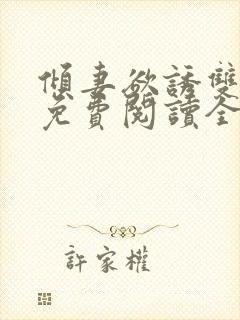 傾妻欲誘雙
免費閱讀全
許家權